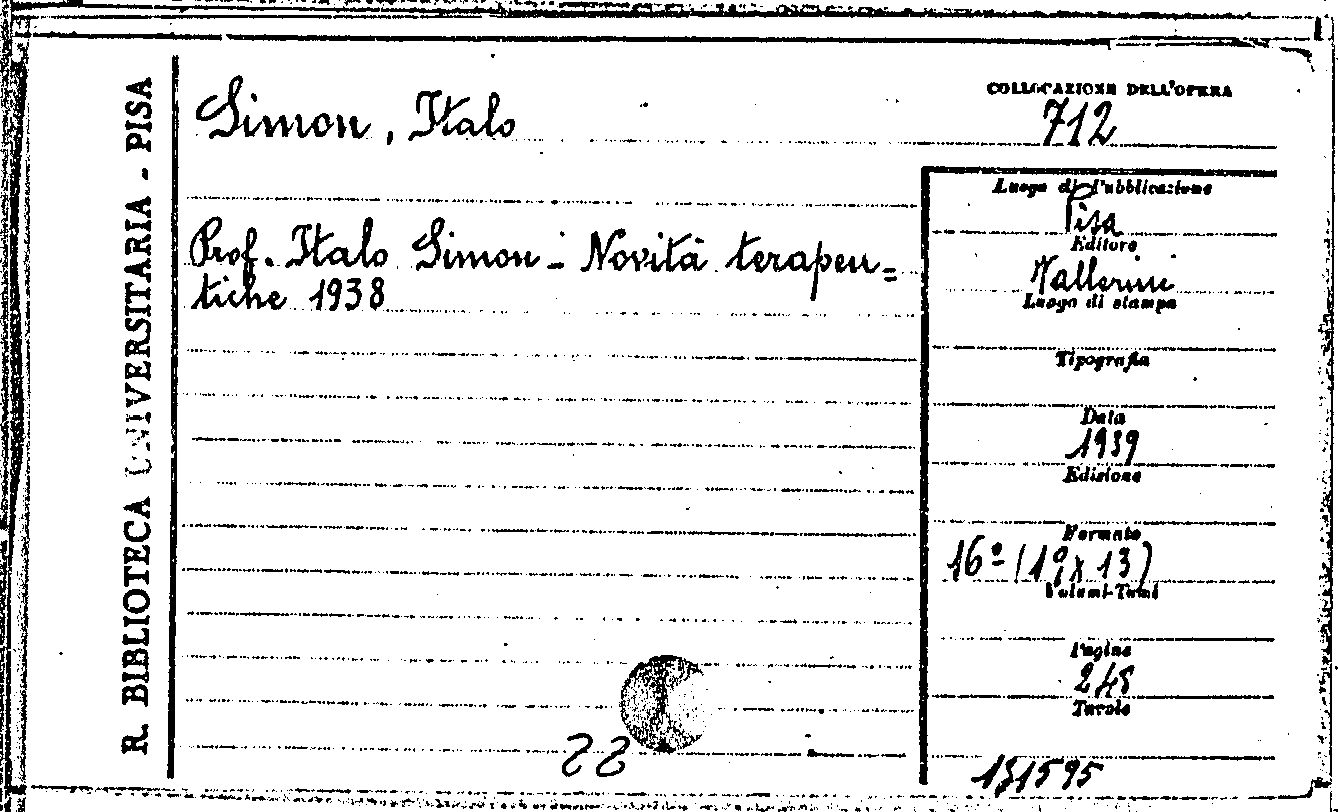 R. BIBLIOTECA UNIVERSITARIA - PISA
Simon, Italo
COLLOCAZIONE DELL'OPERA
712
Prof. Italo Simon - Novità terapeu=
tiche 1938
Luogo di Pubblicazione
Pisa
Editore
Vallerini
Luogo di stampa
Tipografia
Data
1939
Edizione
Formato
16º (19 x 13)
Volumi-Tomi
Pagine
248
Tavole
131595
22